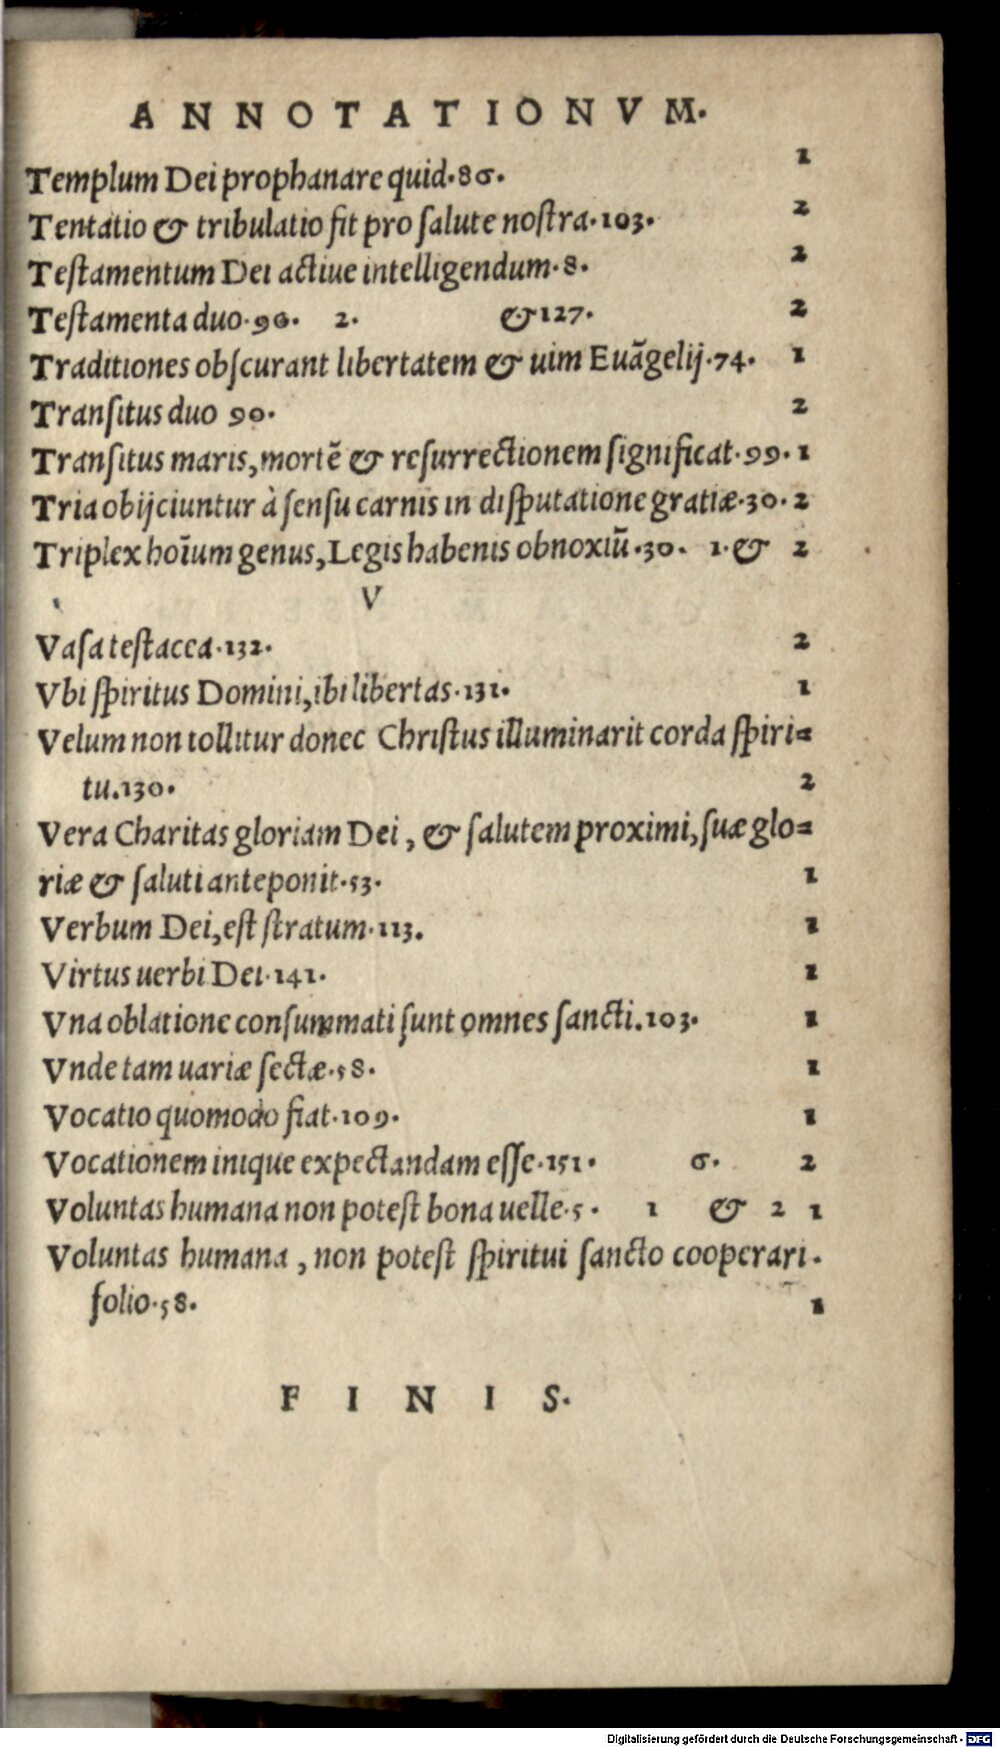 ANNOTATIONVM.
Templum Dei prophanare quid.86. 1
Tentatio & tribulatio fit pro ſalute noſtra.103. 2
Teſtamentum Dei actiue intelligendum.8. 2
Teſtamenta duo.96. 2. &127. 2
Traditiones obſcurant libertatem & uim Euãgelij.74. 1
Tranſitus duo 90. 2
Tranſitus maris, mortẽ & reſurrectionem ſignificat.99. 1
Tria obijciuntur à ſenſu carnis in diſputatione gratiæ.30. 2
Triplex hoĩum genus, Legis habenis obnoxiũ.30. 1.& 2
V
Vaſa teſtacea.132. 2
Vbi ſpiritus Domini, ibi libertas.131. 1
Velum non tollitur donec Chriſtus illuminarit corda ſpiri=
tu.130. 2
Vera Charitas gloriam Dei, & ſalutem proximi, ſuæ glo=
riæ & ſaluti anteponit.53. 1
Verbum Dei, eſt ſtratum.113. 1
Virtus uerbi Dei.141. 1
Vna oblatione conſummati ſunt omnes ſancti.103. 1
Vnde tam uariæ ſectæ.58. 1
Vocatio quomodo fiat.109. 1
Vocationem inique expectandam eſſe.151. 6. 2
Voluntas humana non poteſt bona uelle.5. 1 & 2 1
Voluntas humana, non poteſt ſpiritui ſancto cooperari.
folio.58. 1
FINIS.
Digitalisierung gefördert durch die Deutsche Forschungsgemeinschaft - DFG